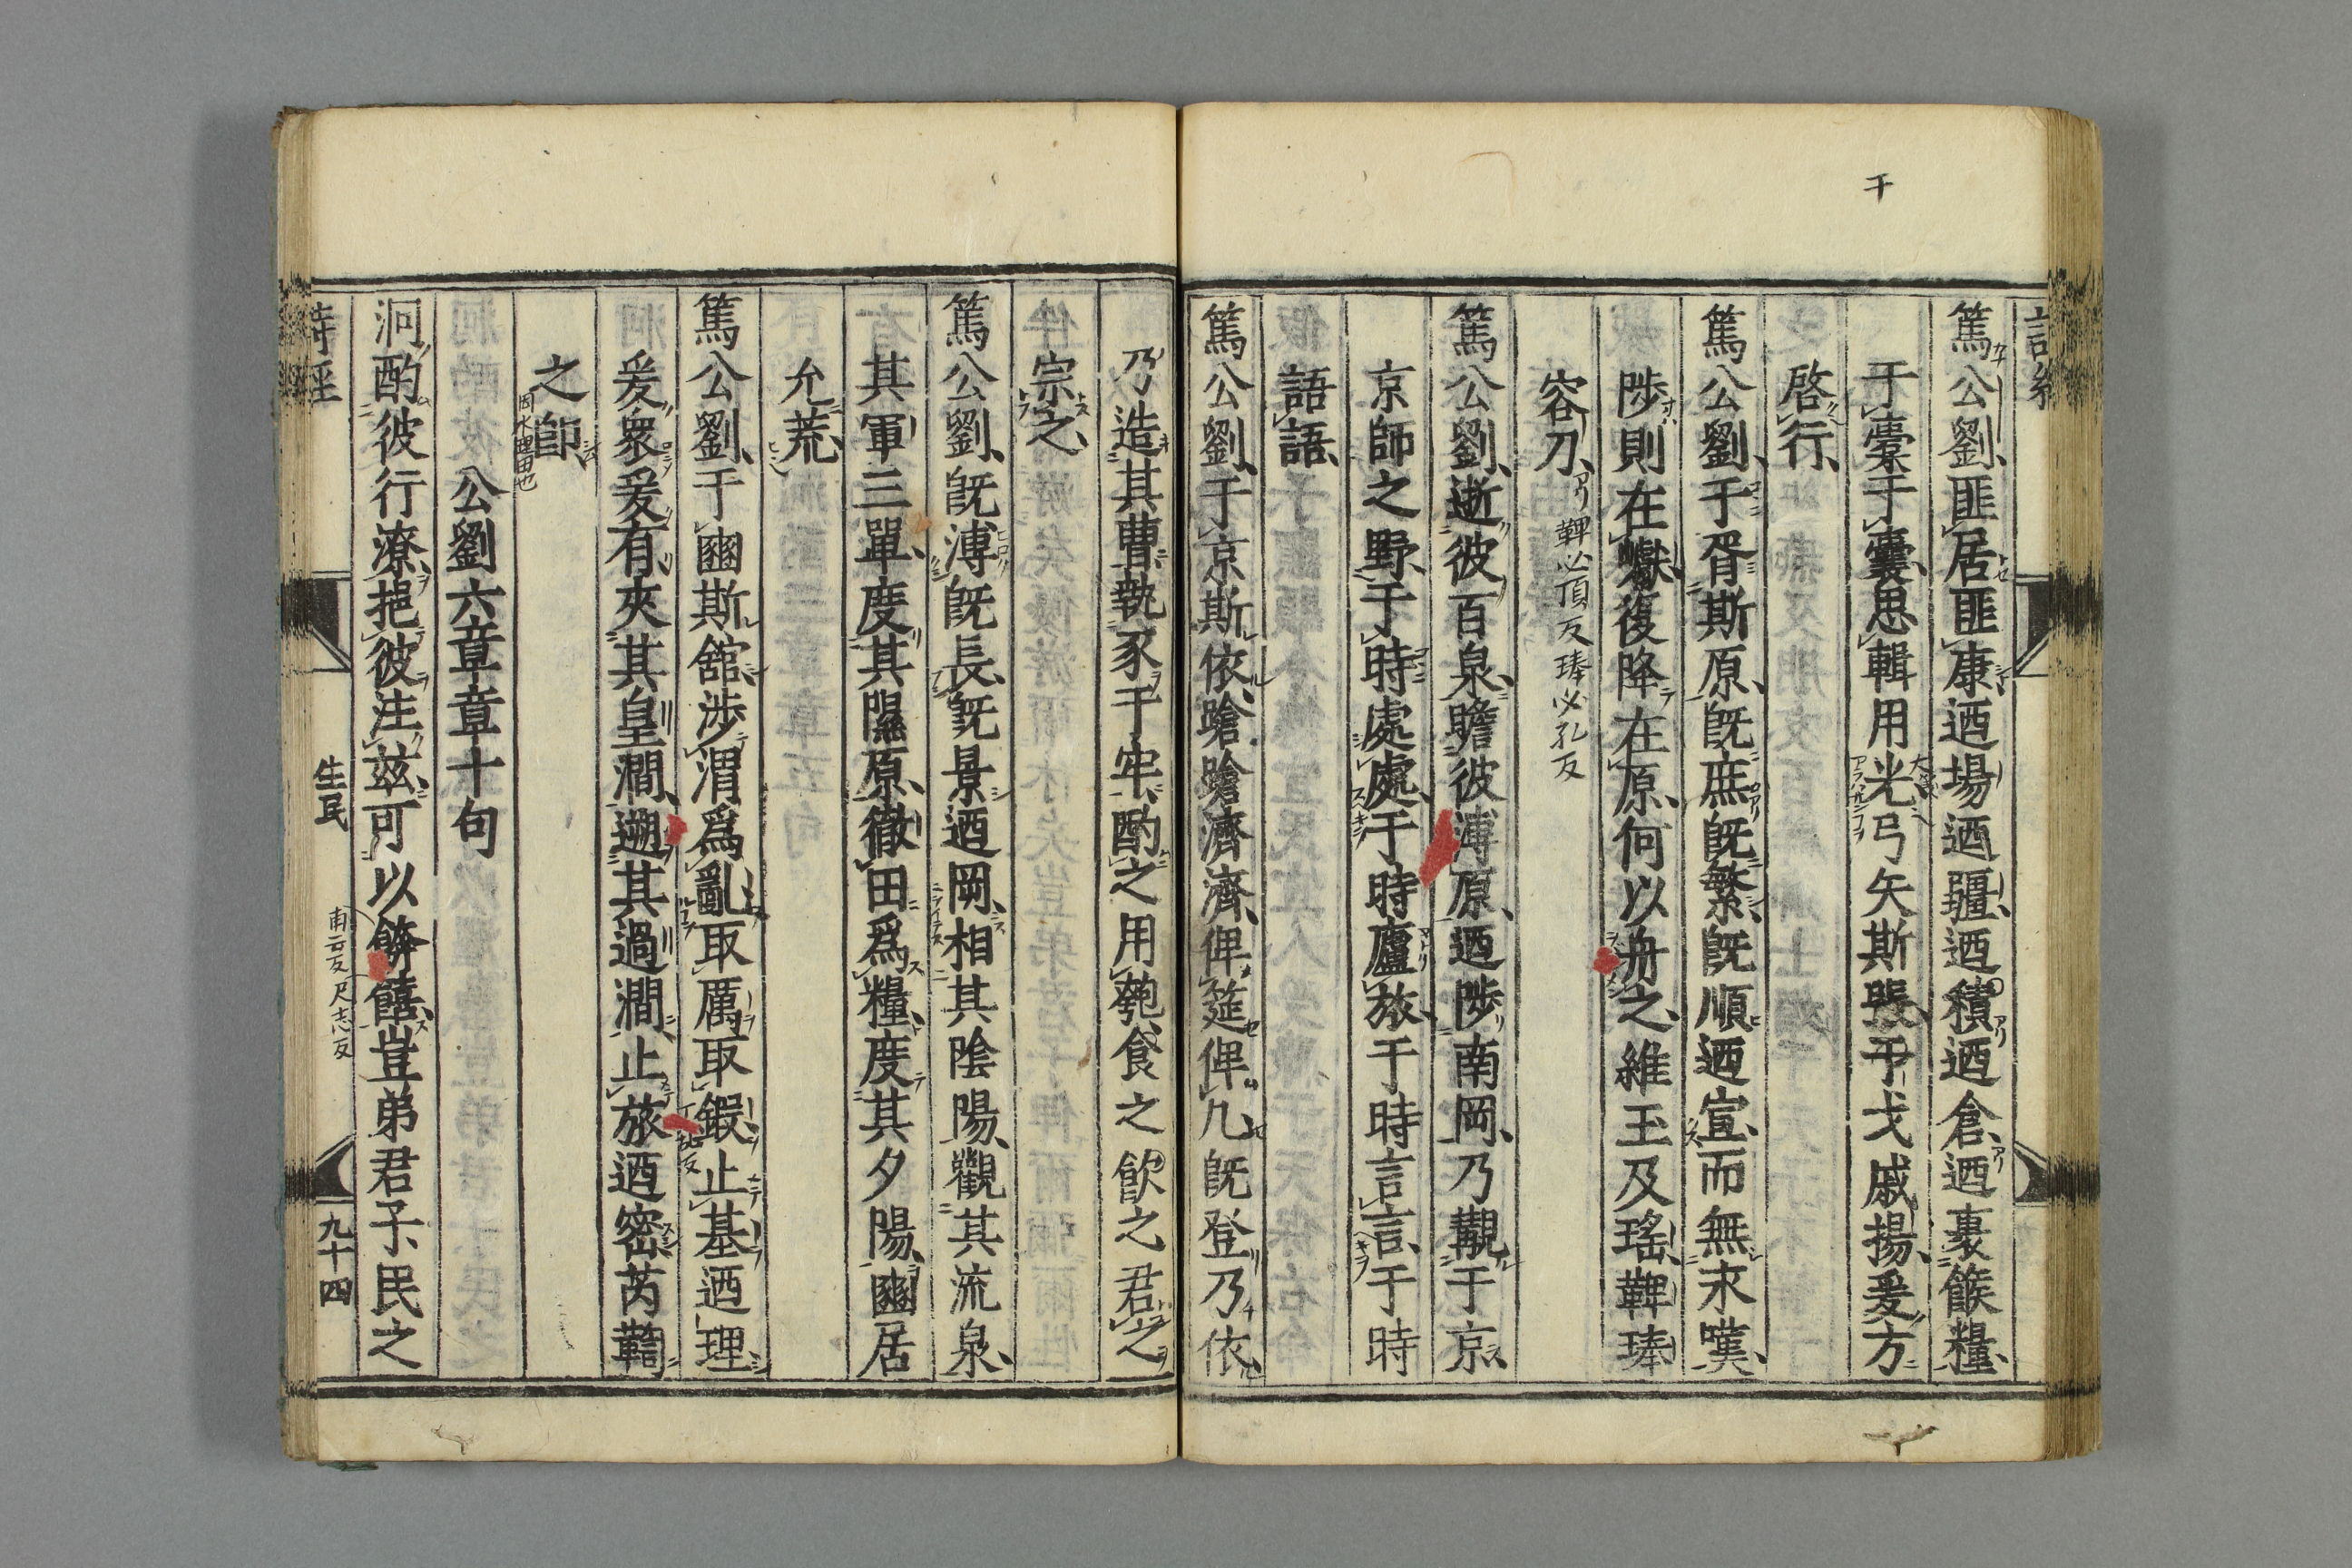 干
篤公劉匪居匪康迺場迺疆迺積迺倉迺裹餱糧
于橐于囊思輯用光弓矢斯張干戈戚揚爰方
啓行
篤公劉于胥斯原旣庶旣繁旣順迺宣而無永嘆
陟則在巘復降在原何以舟之維玉及瑤鞞琫
容刀
鞞必頂反琫必孔反
篤公劉逝彼百泉瞻彼溥原迺陟南岡乃覯于京
京師之野于時處處于時廬旅于時言言于時
語語
篤公劉于京斯依蹌蹌濟濟俾筵俾几旣登乃依
乃造其曹執豕于牢酌之用匏食之飮之君之
宗之
篤公劉旣溥旣長旣景迺岡相其陰陽觀其流泉
其軍三單度其隰原徹田爲糧度其夕陽豳居
允荒
篤公劉于豳斯舘涉渭爲亂取厲取鍜止基迺理
爰衆爰有夾其皇澗遡其過澗止旅迺密芮鞫
之卽
公劉六章章十句
泂酌彼行潦挹彼注玆可以餴饎豈弟君子民之
甫云反尺志反
詩經
生民
九十四